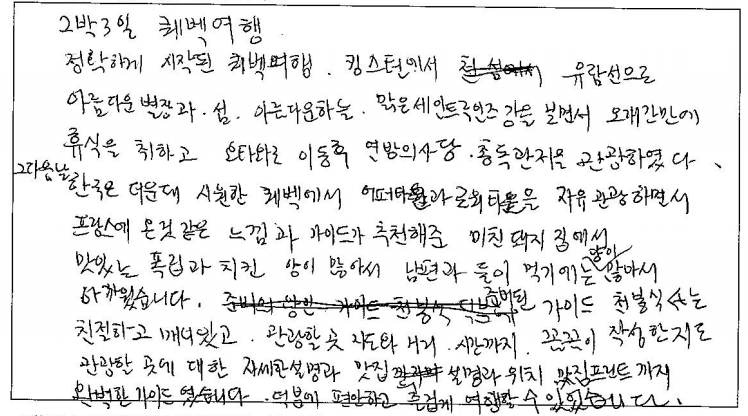 2박3일 퀘벡여행.
정확하게 시작된 퀘벡여행. 킹스턴에서 유람선으로
아름다운 별장과. 섬. 아름다운하늘. 맑은세인트로인즈 강을 보면서 오래간만에
휴식을 취하고 오타와로 이동후 연방의사당. 총독관저을 관광하였다.
그다음날 한국은 더운데 시원한 퀘벡에서 어퍼타운과 로워타운을 자유관광하면서
프랑스에 온것 같은 느낌과 가이드가 추천해준 미친돼지 집에서
맛있는 폭립과 치킨 양이 많아서 남편과 둘이 먹기에는 많아서
아까웠습니다. 가이드 천봉식 씨는
친절하고 깨어있고. 관광할곳 지도와 거리. 시간까지. 꼼꼼이 작성한지도
관광한 곳에 대한 자세한설명과 맛집 설명과 위치 맛집프린트까지
완벽한가이드 였습니다. 덕분에 편안하고 즐겁게 여행할 수 있었습니다.